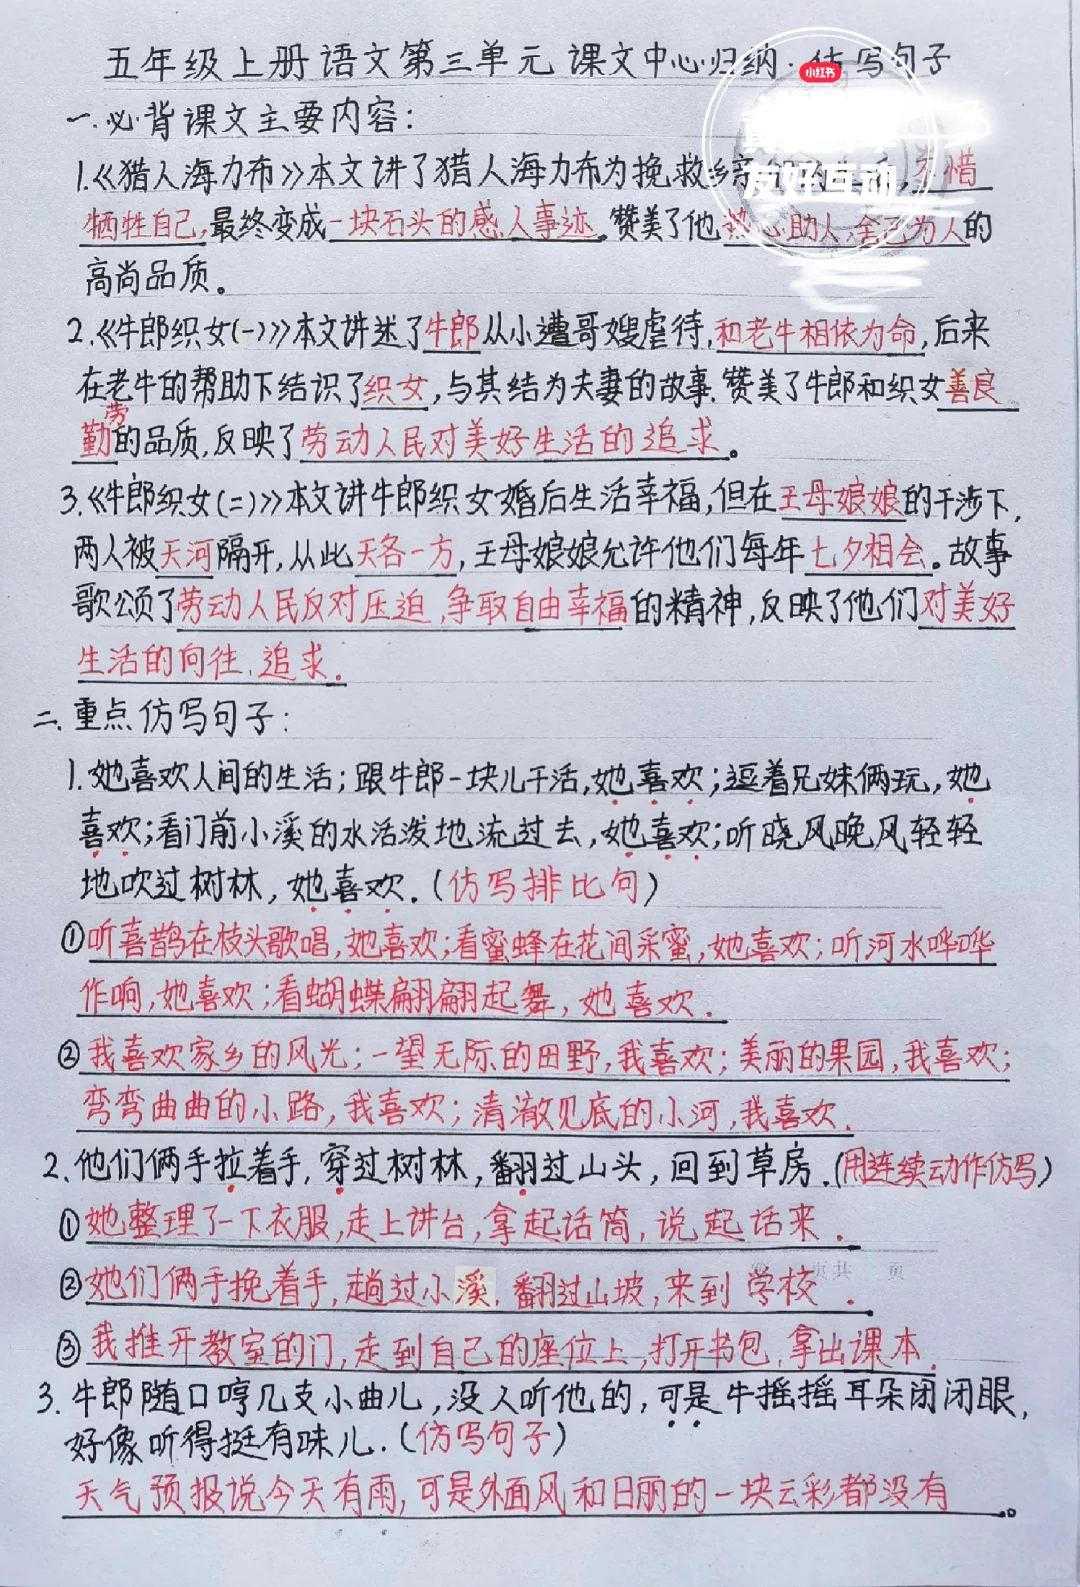 五年级上册语文第三单元 课文中心归纳·仿写句子
小红书
友好互动
一.必背课文主要内容:
1.《猎人海力布》本文讲了猎人海力布为挽救乡亲 不惜
牺牲自己,最终变成一块石头的感人事迹。赞美了他热心助人、舍己为人的
高尚品质。
2.《牛郎织女(一)》本文讲述了牛郎从小遭哥嫂虐待,和老牛相依为命,后来
在老牛的帮助下结识了织女,与其结为夫妻的故事.赞美了牛郎和织女善良
勤劳的品质,反映了劳动人民对美好生活的追求。
3.《牛郎织女(二)》本文讲牛郎织女婚后生活幸福,但在王母娘娘的干涉下,
两人被天河隔开,从此天各一方,王母娘娘允许他们每年七夕相会。故事
歌颂了劳动人民反对压迫,争取自由幸福的精神,反映了他们对美好
生活的向往、追求.
二.重点仿写句子:
1.她喜欢人间的生活;跟牛郎一块儿干活,她喜欢;逗着兄妹俩玩,她
喜欢;看门前小溪的水活泼地流过去,她喜欢;听晓风晚风轻轻
地吹过树林,她喜欢.(仿写排比句)
①听喜鹊在枝头歌唱,她喜欢;看蜜蜂在花间采蜜,她喜欢;听河水哗哗
作响,她喜欢;看蝴蝶翩翩起舞,她喜欢.
②我喜欢家乡的风光;一望无际的田野,我喜欢;美丽的果园,我喜欢;
弯弯曲曲的小路,我喜欢;清澈见底的小河,我喜欢.
2.他们俩手拉着手,穿过树林,翻过山头,回到草房.(用连续动作仿写)
①她整理了一下衣服,走上讲台,拿起话筒,说起话来.
页共 页
②她们俩手挽着手,趟过小溪,翻过山坡,来到学校.
③我推开教室的门,走到自己的座位上,打开书包,拿出课本.
3.牛郎随口哼几支小曲儿,没人听他的,可是牛摇摇耳朵闭闭眼,
好像听得挺有味儿.(仿写句子)
天气预报说今天有雨,可是外面风和日丽的一块云彩都没有。